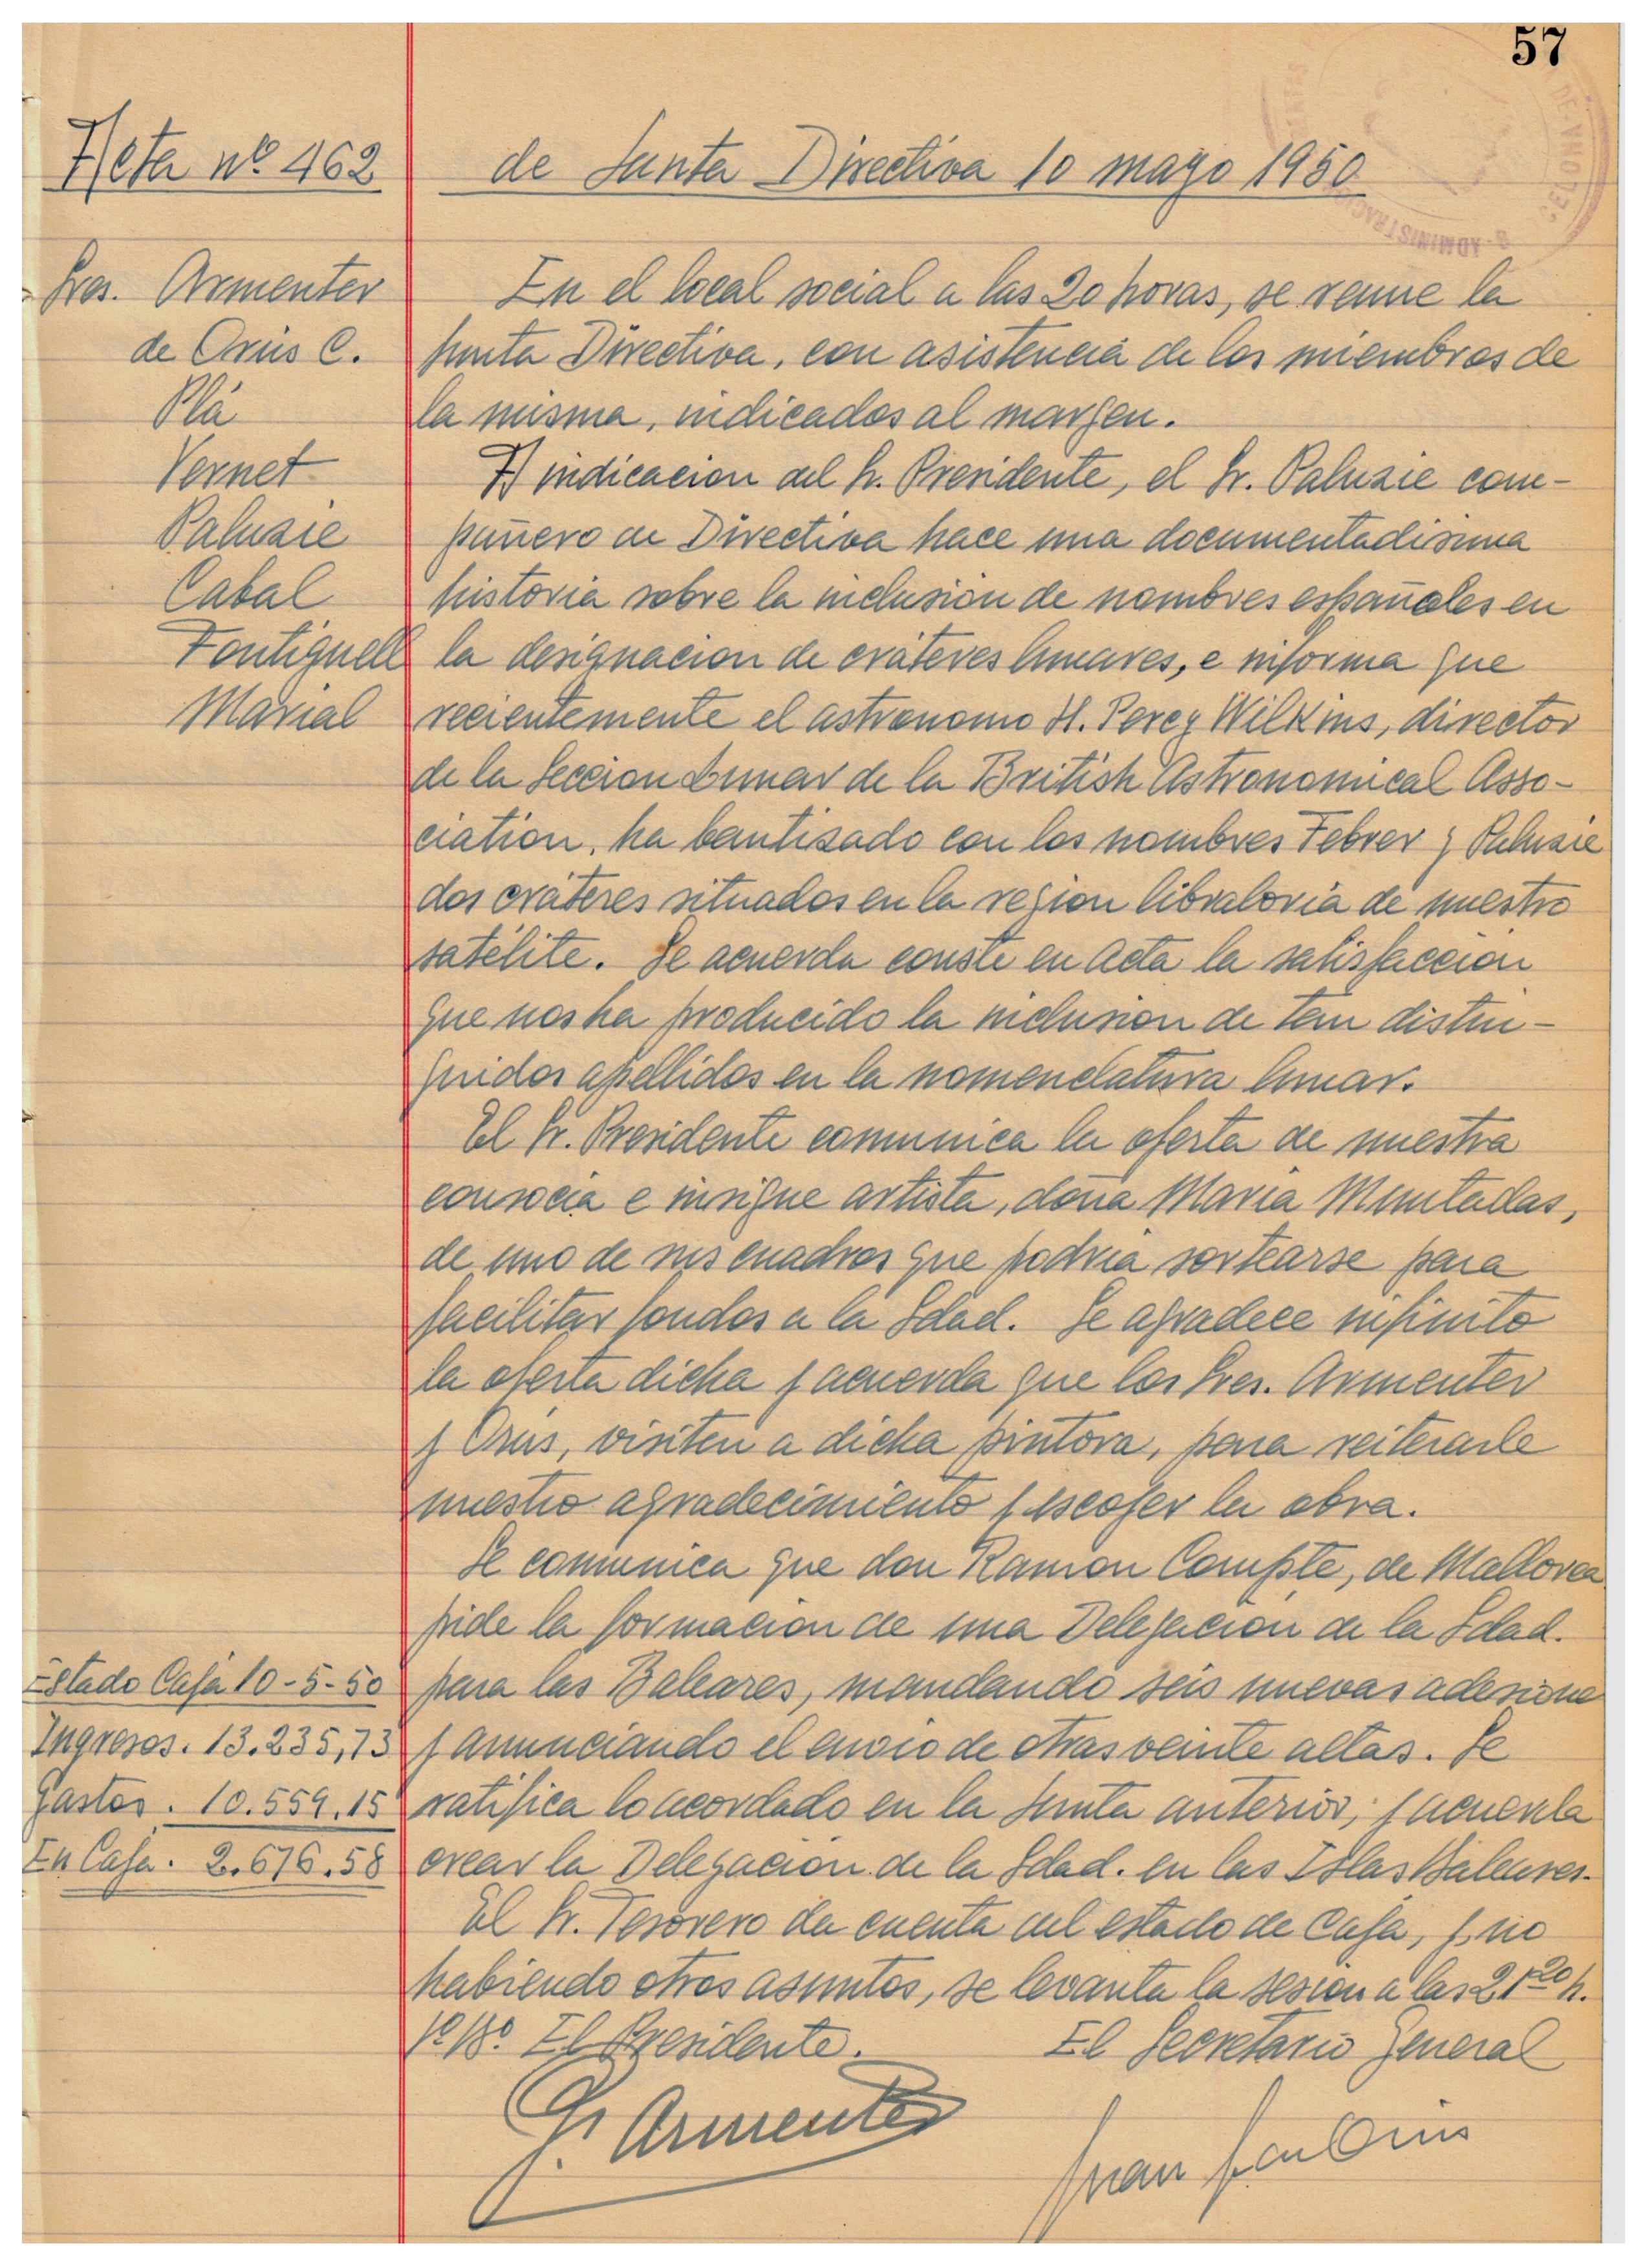 57
Acta nº 462 de Junta Directiva 10 mayo 1950
Sres. Armenter
de Orús C.
Plá
Vernet
Palusie
Cabal
Fontiguell
Marial
En el local social a las 20 horas, se reune la
Junta Directiva, con asistencia de los miembros de
la misma, indicados al margen.
A indicacion del Sr. Presidente, el Sr. Palusie com-
pañero de Directiva hace una documentadisima
historia sobre la inclusión de nombres españoles en
la designacion de cráteres lunares, e informa que
recientemente el astronomo H. Percy Wilkins, director
de la Seccion Lunar de la British Astronomical Asso-
ciation, ha bautisado con los nombres Febrer y Palusie
dos cráteres situados en la region libratoria de nuestro
satélite. Se acuerda conste en Acta la satisfaccion
que nos ha producido la inclusion de tan distin-
guidos apellidos en la nomenclatura lunar.
El Sr. Presidente comunica la oferta de nuestra
consocia e insigne artista, doña Maria Muntadas,
de uno de sus cuadros que podria sortearse para
facilitar fondos a la Sdad. Se agradece infinito
la oferta dicha y acuerda que los Sres. Armenter
y Orús, visiten a dicha pintora, para reiterarle
nuestro agradecimiento y escoger la obra.
Se comunica que don Ramon Compte, de Mallorca
pide la formacion de una Delegacion de la Sdad.
para las Baleares, mandando seis nuevas adesione
y anunciando el envio de otras veinte altas. Se
ratifica lo acordado en la Junta anterior, y acuerda
crear la Delegacion de la Sdad. en las Islas Baleares.
Estado Caja 10-5-50
Ingresos. 13.235,73
Gastos. 10.559.15
En Caja. 2.676.58
El Sr. Tesorero da cuenta del estado de Caja, y no
habiendo otros asuntos, se levanta la sesion a las 21 20 h.
Vº Bº. El Presidente. El Secretario General
Armenter
ADMINISTRACION